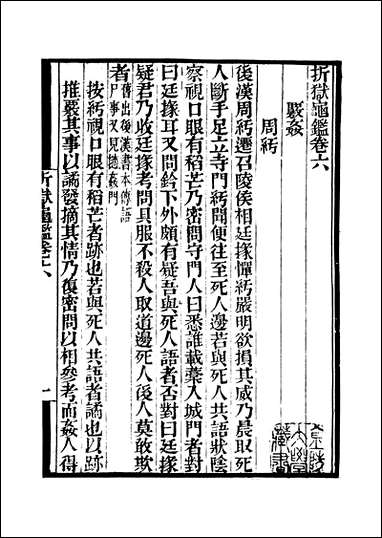 折獄龜鑑卷六
覈姦
周紆
後漢周紆遷召陵侯相廷掾憚紆嚴明欲損其威乃晨取死
人斷手足立寺門紆聞便往至死人邊若與死人共語狀陰
察視口眼有稻芒乃密問守門人曰悉誰載藁入城門者對
曰廷掾耳又問鈴下外頗有疑吾與死人語者否對曰廷掾
疑君乃收廷掾考問具服不殺人取道邊死人後人莫敢欺
者舊出後漢書本傳語
尸事又見摘姦門
按紆視口眼有稻芒者跡也若與死人共語者譎也以跡
推覈其事以譎發摘其情乃復密問以相參考而姦人得
折獄龜鑑卷六
一